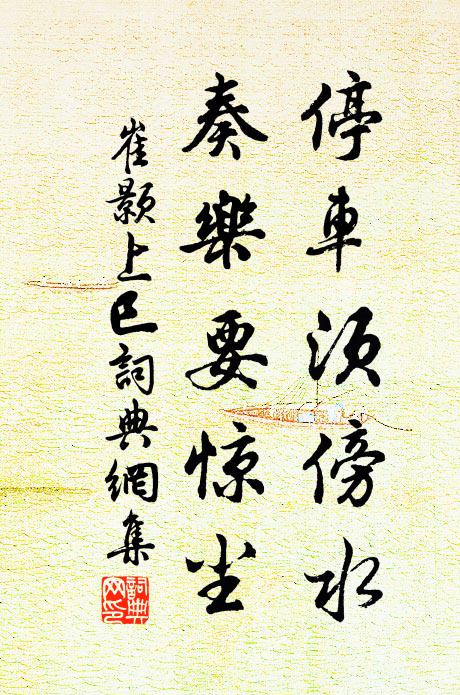 停車须傍水
奏樂要惊尘
崔颢上巳詞典網集
詞典
网印